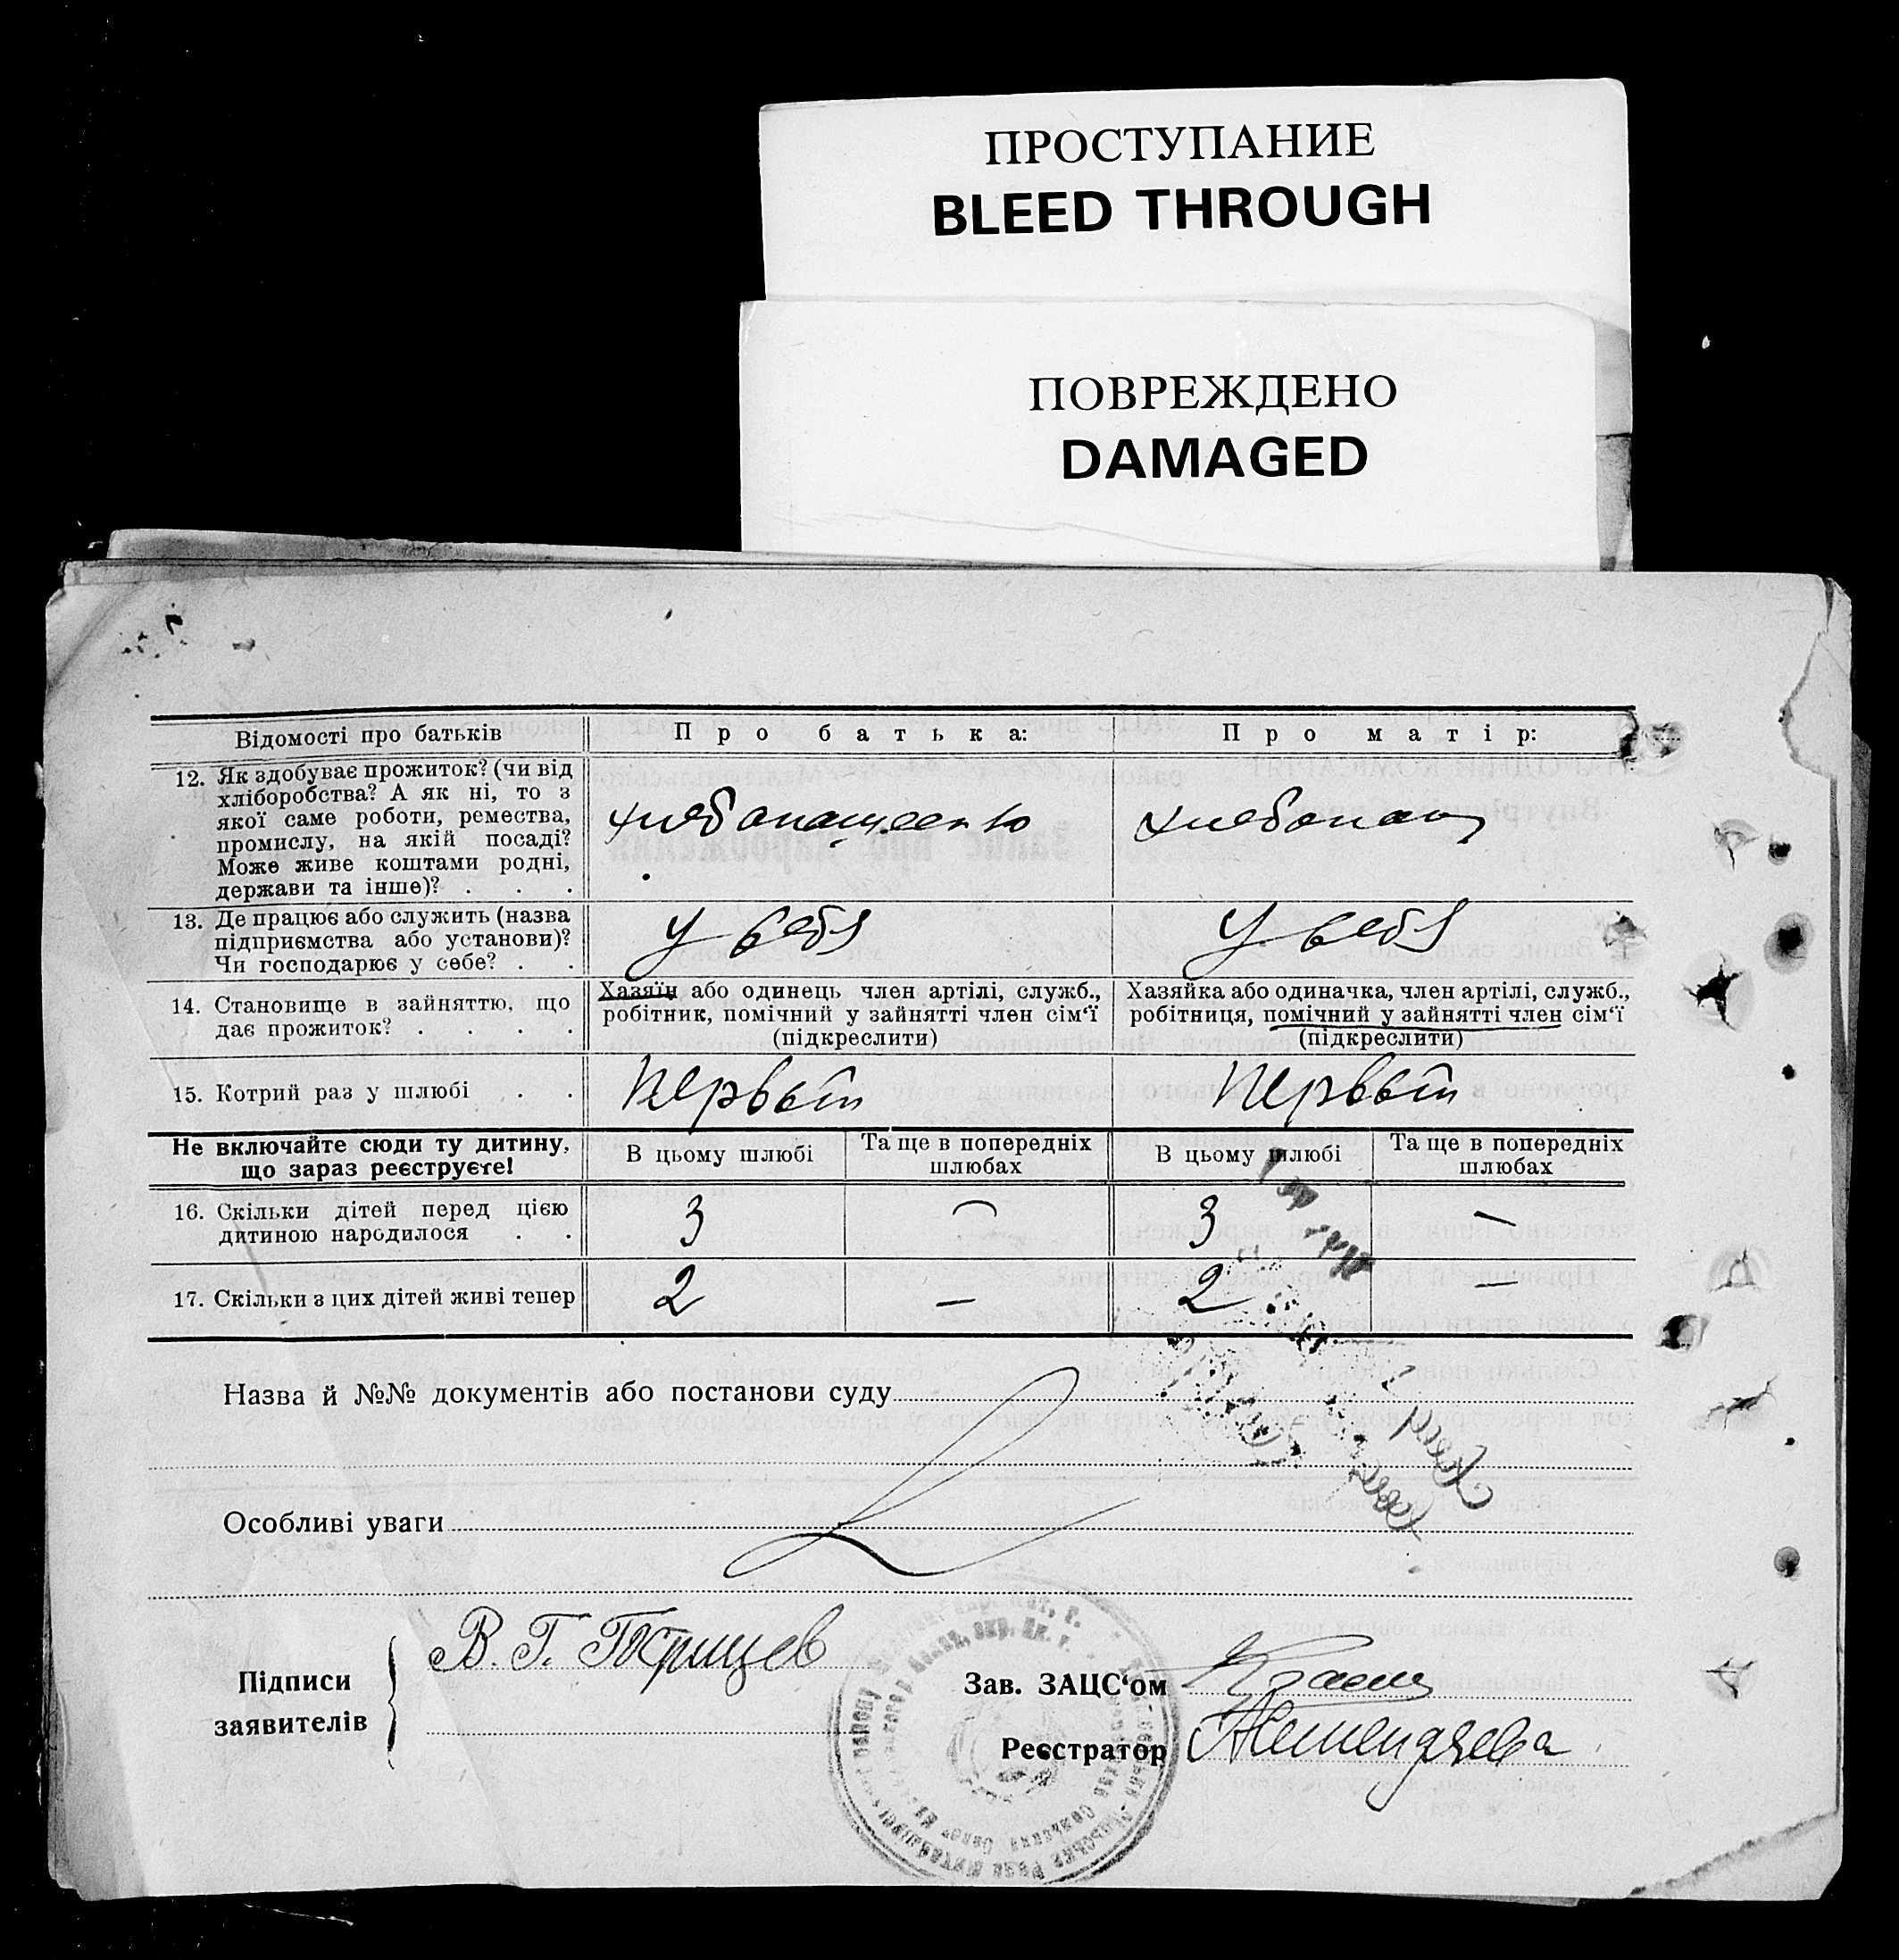 ПРОСТУПАНИЕ
BLEED THROUGH
ПОВРЕЖДЕНО
DAMAGED
Відомості про батьків
Про батька:
Про матір:
12. Як здобуває прожиток? (чи від
хліборобства? А як ні, то з
якої саме роботи, ремества,
промислу, на якій посаді?
Може живе коштами родні,
держави та інше)? . . .
хлебопащеенью
хлебопащ
13. Де працює або служить (назва
підприємства або установи)?
Чи господарює у себе? . .
У себя
У себя
14. Становище в зайняттю, що
дає прожиток? . . . .
Хазяїн або одинець член артілі, служб.,
робітник, помічний у зайнятті член сім‘ї
(підкреслити)
Хазяйка або одиначка, член артілі, служб.,
робітниця, помічний у зайнятті член сім‘ї
(підкреслити)
15. Котрий раз у шлюбі . .
Первый
Первый
Не включайте сюди ту дитину,
що зараз реєструєте!
В цьому шлюбі
Та ще в попередніх
шлюбах
В цьому шлюбі
Та ще в попередніх
шлюбах
16. Скільки дітей перед цією
дитиною народилося . .
3
—
3
—
17. Скільки з цих дітей живі тепер
2
—
2
—
Назва й №№ документів або постанови суду
Особливі уваги
Підписи
заявителів
В. Г.
Зав. ЗАЦС‘ом
Реєстратор